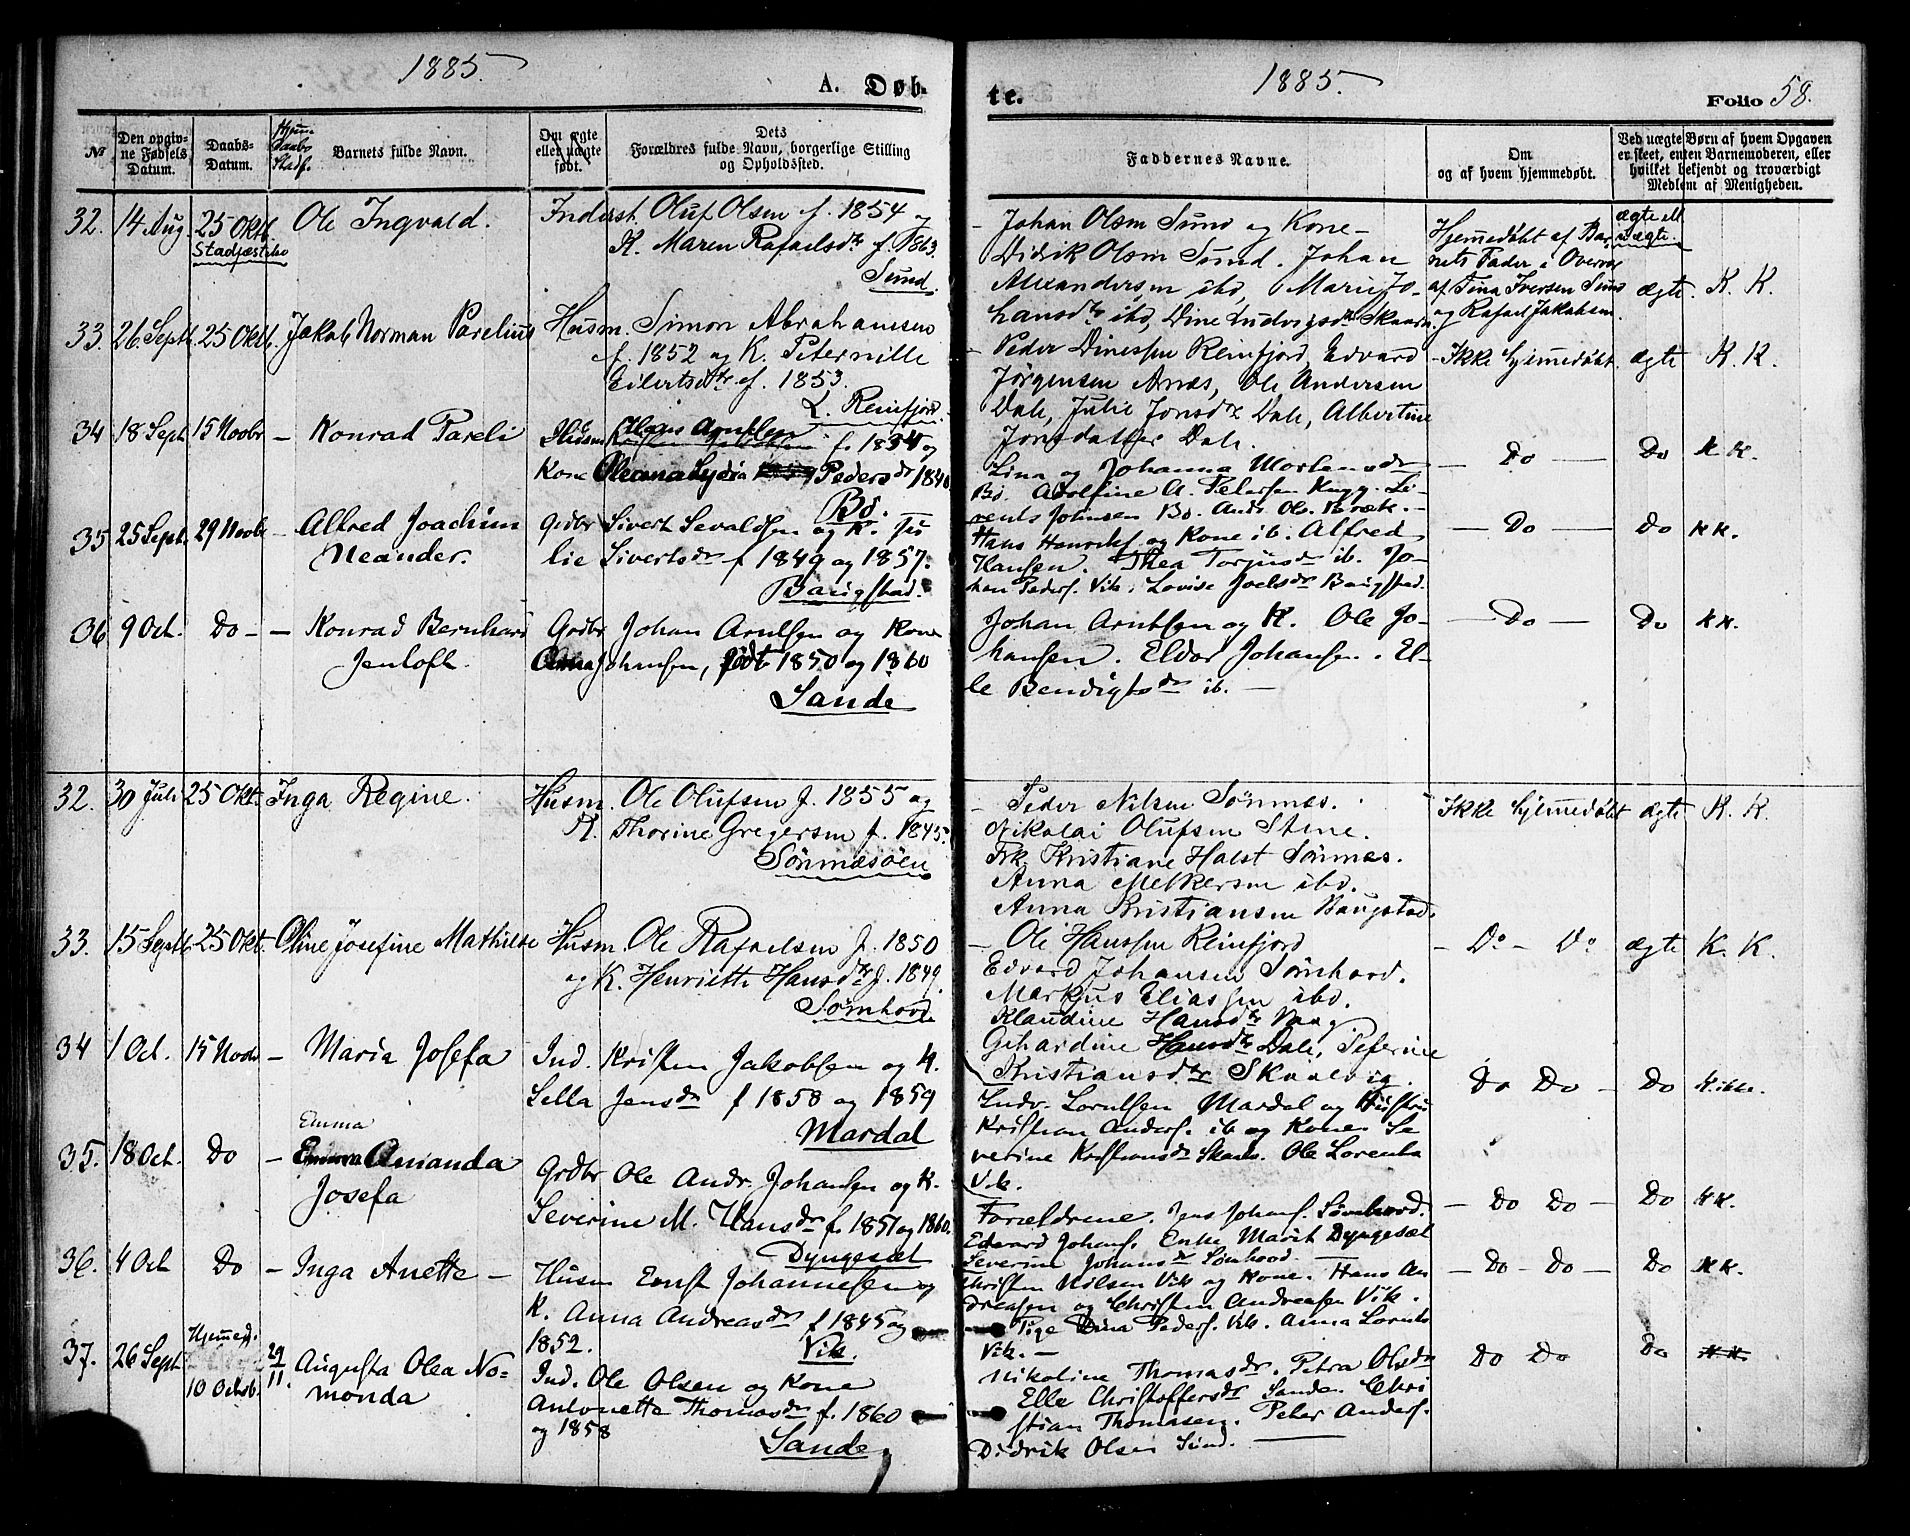 1885.
A. Døb-
te.
1885.
Folio 58.
№
Den opgiv-
ne Fødsels
Datum.
Daabs-
Datum.
Barnets fulde Navn.
Om ægte
eller uægte
født.
Dets
Forældres fulde Navn, borgerlige Stilling
og Opholdssted.
Faddernes Navne.
Om
og af hvem hjemmedøbt.
Ved uægte Børn af hvem Opgaven
er skeet, enten Barnemoderen, eller
hvilket bekjendt og troværdigt
Medlem af Menigheden.
32. 14 Aug. 25 Oktb. Ole Ingvald.
Inderst Oluf Olsen f. 1854 og
K. Maren Rafaelsdtr f. 1863.
Sund.
Johan Olsen Sund og Kone
Didrik Olsen Sund. Johan
Alexandersen ibd, Marie Jo-
hansdtr ibd, Dine Ludvigsdtr
Hjemedøbt af Bar-
nets Fader i Overvær
af Tina Iversen Sund
og Rafael Jakobsen.
ægte ell
uægte.
ægte. K. K.
33. 26 Septb. 25 Oktb. Jakob Norman Parelius
Husm. Simon Abrahamsen
f. 1852 og K. Peternille
Eilertsdtr f. 1853.
L. Reinfjord.
Peder Dinessen Reinfjord, Edvard
Jørgensen Arnæs, Ole Andersen
Dale, Julie Jonsdtr Dale, Albertine
Jonsdatter Dale.
Ikke hjemedøbt. ægte K. K.
34 18 Sept 15 Novbr — Konrad Pareli
Hans Arntsen
f. 1834 og
Kone Oleana Lydia Pedersdr 1840
Bø.
Lina og Johanna Mortensdr
Bø. Adolfine A. Petersen
Johnsen Bø.
— Do — Do K K.
35 25 Sept. 29 Novbr — Alfred Joachim
Neander.
Grdbr Sivert Sevaldsen og K. Ju
lie Sivertsdr f 1849 og 1857.
Baugstad.
Hans og Kone ib. Alfred
Hansen. Thea ib. Jo-
han Peders. Vik. Lovise Joelsdr Baugstad.
— Do — Do KK.
36 9 Oct. Do — — Konrad Bernhard
Jentoft.
Grdbr Johan Arntsen og Kone
Anna Johansen, født 1850 og 1860
Sande
Johan Arntsen og K. Ole Jo-
hansen. Eldor Johansen. El-
le Bendigtsdr ib. —
— Do — Do KK.
32. 30 Juli 25 Okt. Inga Regine.
Husm. Ole Olufsen f. 1855 og
K. Thorine Gregersen f. 1845.
Sønnæsøen
Peder Nilsen Sønnæs.
Nikolai Olufsen Stene.
Frk. Kristiane Halst Sønnæs.
Anna Melkersen ibd.
Anna Kristiansen Baugstad.
Ikke hjemedøbt ægte K. K
33. 15 Septb. 25 Okt. Oline Josefine Mathilde
Husm. Ole Rafaelsen f. 1850
og K. Henriette Hansdtr f. 1849.
Sørnhovd
Ole Hanssen Reinfjord
Edvard Johansen Sørnhovd.
Markus Eliassen ibd.
Klaudine Hansdtr Vaag
Gehardine Hansdtr Dale,
Kristiansdtr Skaalvig.
— Do — Do ægte K. K
34 1 Oct. 15 Novbr — Maria Josefa
Ind. Kristen Jakobsen og K.
Sella Jensdr f 1858 og 1859
Mardal
Ludv. Lorntsen Mardal og Hustru
Kristian Anders. ib og Kone. Se
verine Kristiansdr Ole Lorents
Vik.
Do Do — Do
35. 18 Oct. Do —
Emma
Amanda
Josefa
Grdbr Ole Andr. Johansen og K.
Severine M. Hansdr f. 1851 og 1860.
Dyngesæt
Forældrene. Jens Johans. Sørnhovd.
Edvard Johans. Enke Marit Dyngesæt
Severine Johansdr Sørnhovd —
— Do Do — Do KK.
36. 4 Oct Do — Inga Anette —
Husm Ernst Johannesen og
K. Anna Andreasdr f 1845 og
1852. Vik.
Christen Nilsen Vik og Kone. Hans An
dreasen og Christen Andreasen Vik.
Pige Dina Peders. Vik. Anna Lornts
Vik. —
— Do — Do — Do KK.
37. 26 Sept.
Hjemed.
10 Octob. 29/11. Augusta Olea No-
monda
Ind. Ole Olsen og Kone
Antonette Thomasdr f. 1860
og 1858
Sande
Nikoline Thomasdr. Petra Olsdr
Elle Christoffersdr Sande. Chri
stian Thomasen. Peter Anders.
Didrik Olsen Sund.
Do Do Do KK.